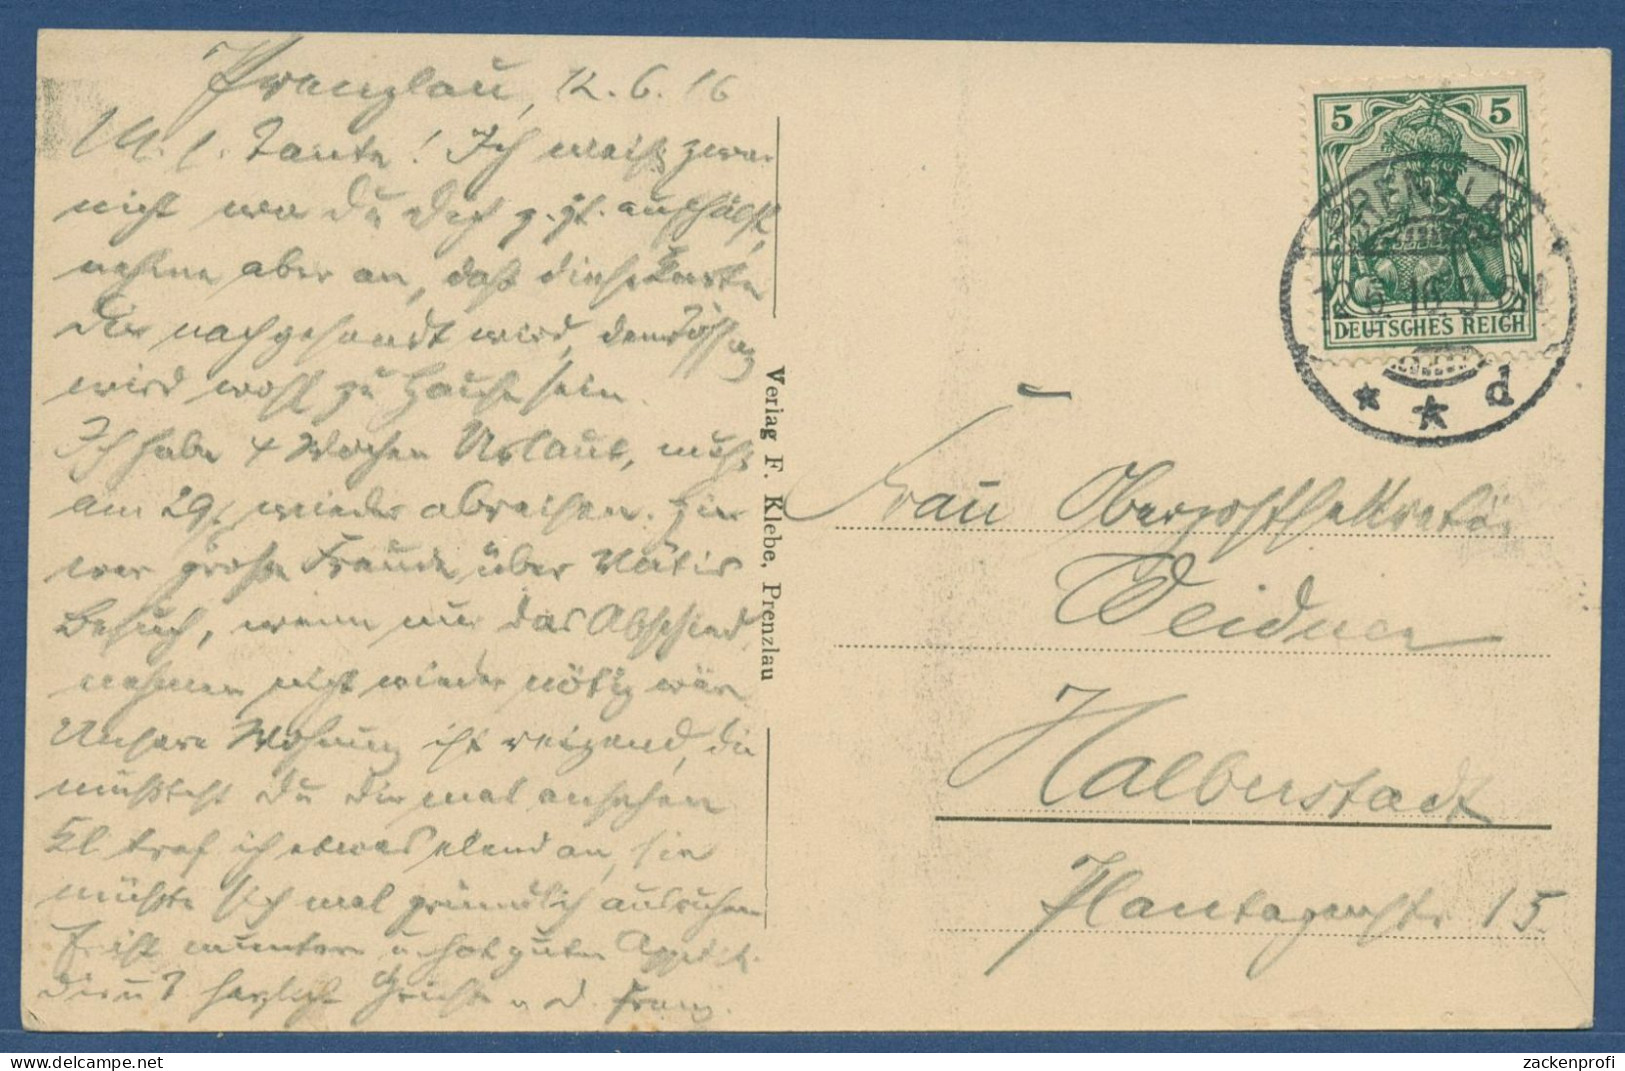 Prenzlau, 12.6.16
M. l. Tante! Ich weiß zwar
nicht wo Du Dich z. Zt. aufhälst,
nehme aber an, daß diese Karte
Dir nachgesandt wird, denn
wird wohl zu Hause sein.
Ich habe 4 Wochen Urlaub, muß
am 29. wieder abreisen. Hier
war große Freude über
Besuch, wenn nur das Abschied
nehmen nicht wieder nötig wär.
Unsere Wohnung ist reizend, die
müßtest Du Dir mal ansehen
traf ich etwas elend an, sie
müßte sich mal gründlich ausruhen
ist munter u. hat guten Appetit.
herzlich grüßt Franz.
Verlag F. Klebe, Prenzlau
5 5
DEUTSCHES REICH
PRENZLAU
12.6.16.
* * d
Frau Oberpostsekretär
Weidner
Halberstadt
Plantagenstr. 15.
zackenprofi